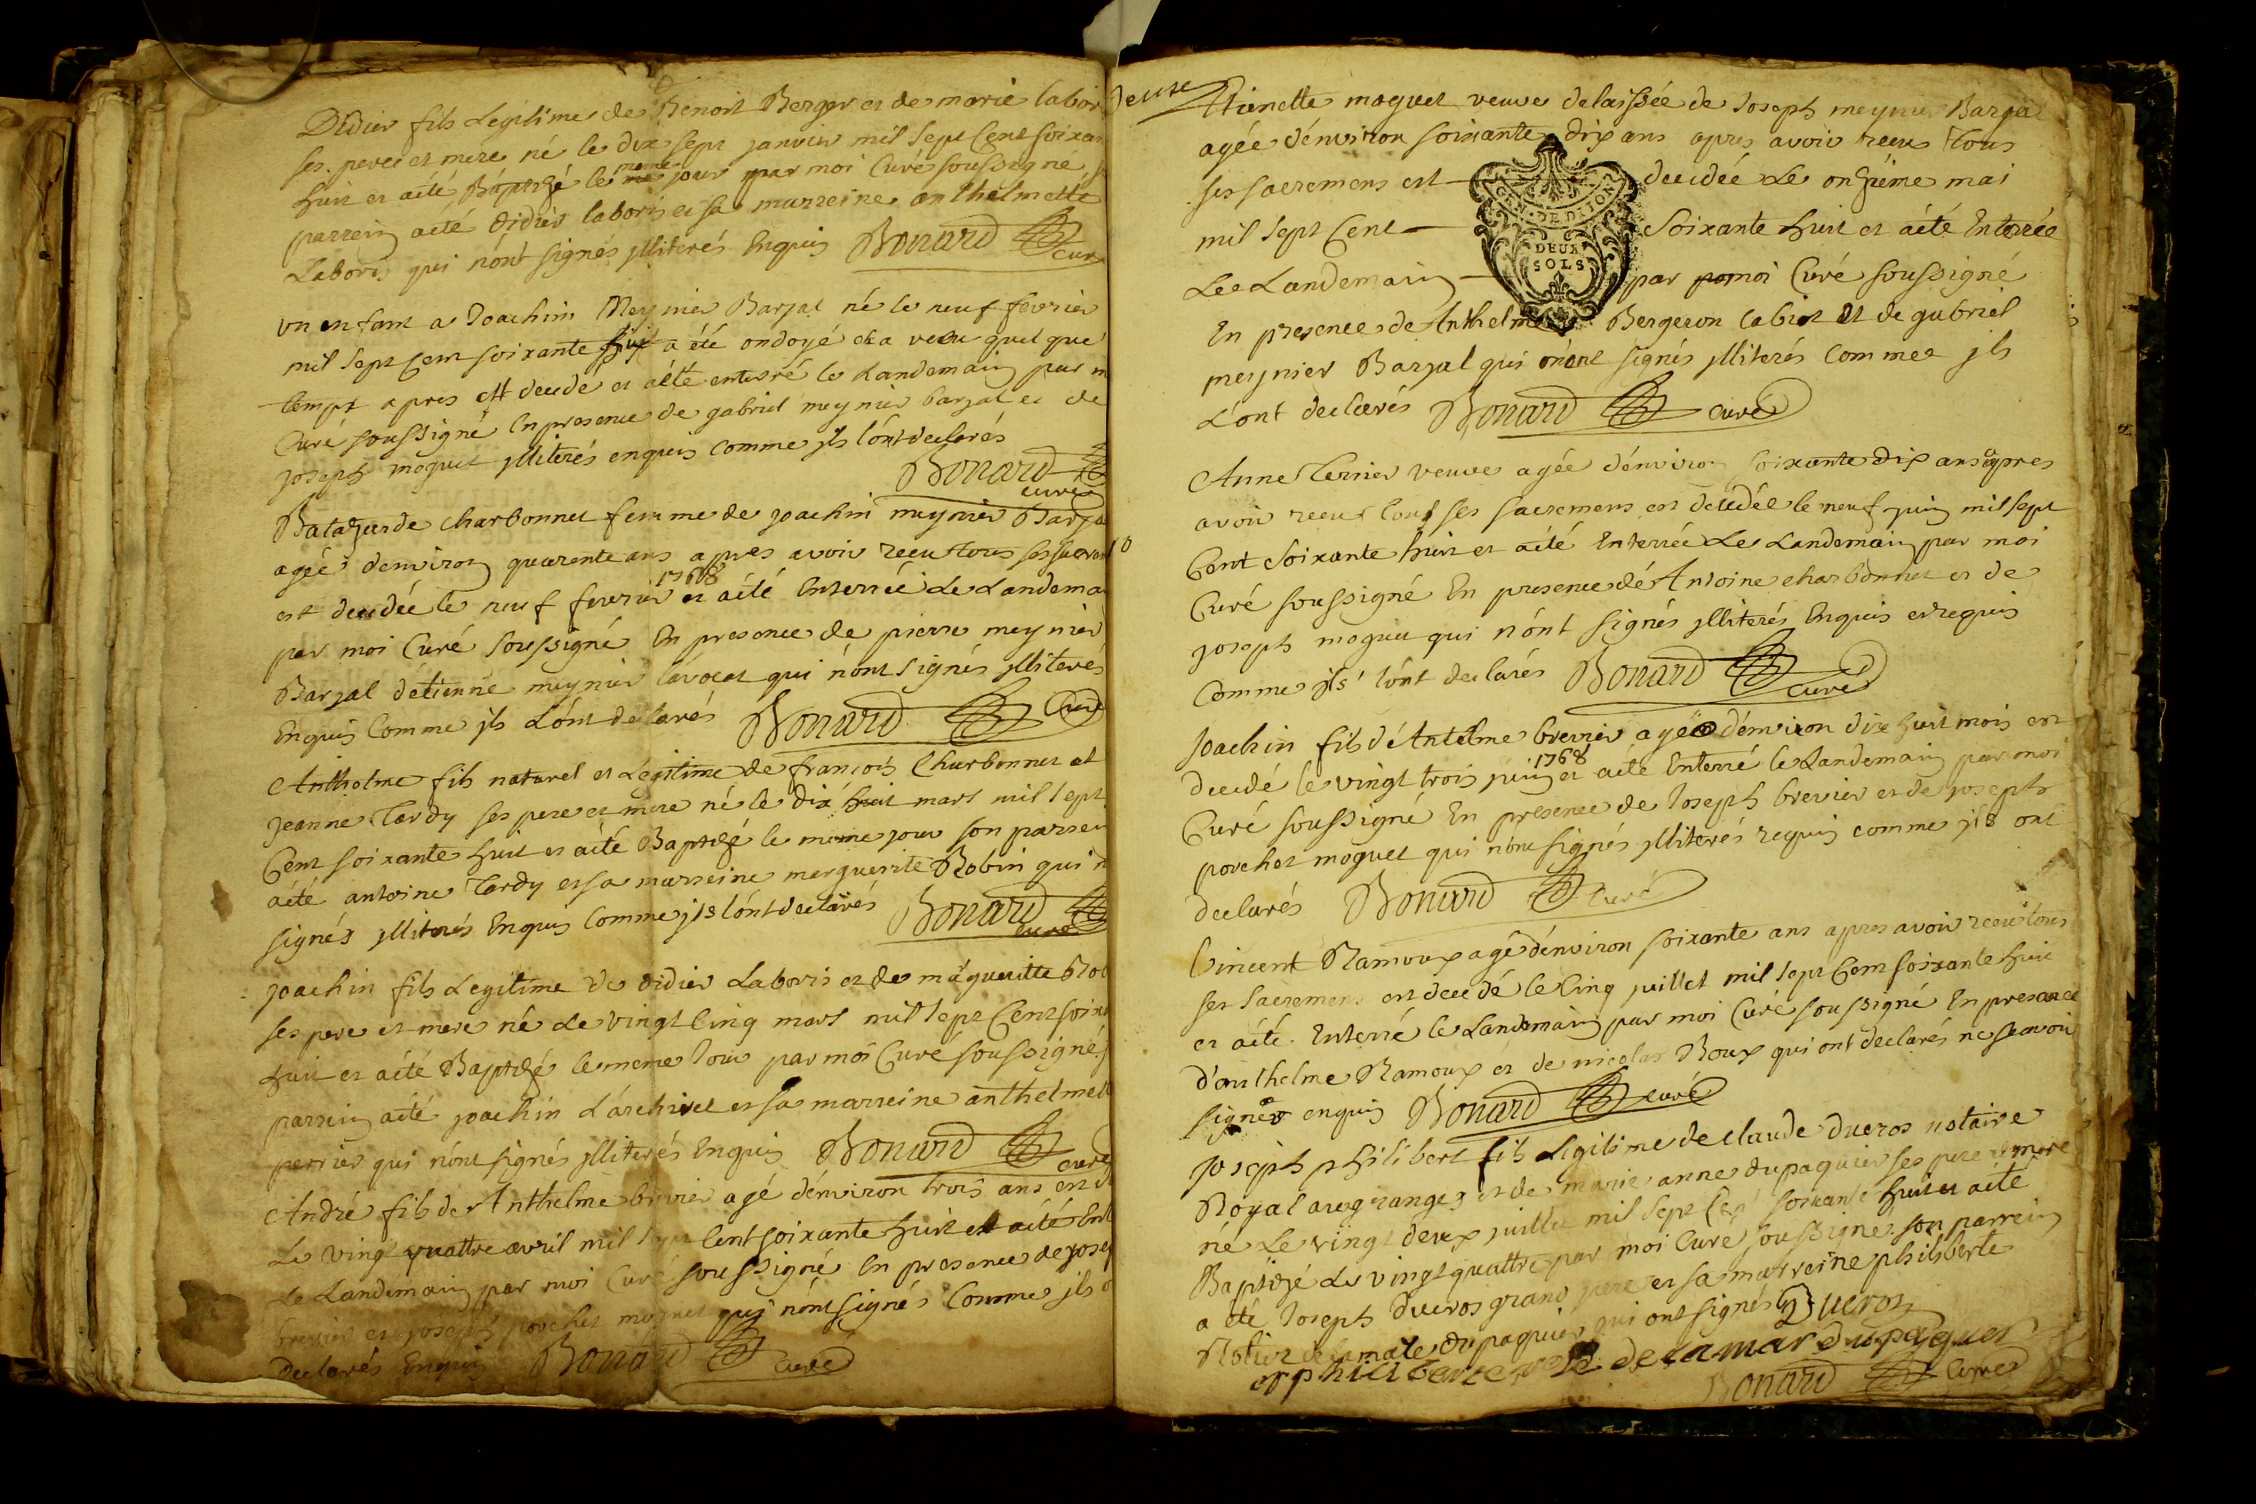 Didier fils Legitime de Benoit Berger et de marie labor
ses pere et mere né le dix sept janvier mil sept Cent soixan
huit et a été Baptizé le meme jour par moi Curé soussigné
parrein a été didier laboris et sa marreine anthelmette
Laboris qui n'ont signés jlliterés Enquis Bonard curé
un enfant a Joachim Meynier Barjal né le neuf fevrier
mil sept cent soixante huit a été ondoyé et a vecu quelque
temps apres est decedé et a été enterré le Landemain par m
Curé soussigné En presence de gabriel meynier barjal et de
joseph moguet jlliterés enquis comme jls l'ont declarés
Bonard
curé
Batazarde charbonnet femme de joachin meynier Barja
agée d'environ quarente ans apres avoir receu tous ses sacrem
1768
est decedée le neuf fevrier et a été Enterrée Le Landema
par moi Curé soussigné En presence de pierre meynier
Barjal d'étienne meynier l'avocat qui n'ont signés jlliterés
Enquis Comme jls L'ont declarés Bonard Curé
Anthelme fils naturel et Legitime de françois Charbonnet et
jeanne Tardy ses pere et mere né le dix huit mars mil sept
Cent soixante huit et a été Baptizé le meme jour son parrei
a été antoine Tardy et sa marreine marguerite Robin qui n
signés jlliterés Enquis Comme jls l'ont declarés Bonard
curé
joachin fils Legitime de didier Laboris et de margueritte Rob
ses pere et mere né Le vingt Cinq mars mil sept Cent soixa
huit et a été Baptizé le meme Jour par moi Curé soussigné
parrein a été joachin L'archivet et sa marreine anthelmett
perrier qui n'ont signés jlliterés Enquis Bonard curé
André fils de Anthelme brevier agé d'environ trois ans est d
Le vingt quattre avril mil sept Cent soixante huit et a été Ent
Le Landemain par moi Curé soussigné En presence de josep
brevier et joseph porchet moguet qui n'ont signés Comme jls
declarés Enquis Bonard curé
deuse
Etienette moguet veuve delaissée de Joseph meynier Barjal
agée d'environ soixante dix ans apres avoir receu tous
ses sacremens est decedée Le onzième mai
mil sept Cent soixante huit et a été Enterrée
Le Landemain par moi Curé soussigné
GEN. DE DIJON
DEUX
SOLS
En presence de Anthelme Bergeron Cabiot et de gabriel
meynier Barjal qui n'ont signés jlliterés Comme jls
L'ont declarés Bonard curé
Anne Ternier veuve agée d'environ soixante dix ans apres
avoir receu tous ses sacremens est decedée le neuf juin mil sept
Cent soixante huit et a été Enterrée Le Landemain par moi
Curé soussigné En presence d'Antoine charbonnet et de
joseph moguet qui n'ont signés jlliterés Enquis et requis
Comme jls l'ont declarés Bonard curé
Joachin fils d'Antelme brevier agé d'environ dix huit mois est
1768
decedé le vingt trois juin et a été Enterré le Landemain par moi
Curé soussigné En presence de Joseph brevier et de joseph
porchet moguet qui n'ont signés jlliterés requis comme jls ont
declarés Bonard curé
Vincent Ramoux agé d'environ soixante ans apres avoir receu tous
ses sacremens est decedé le Cinq juillet mil sept Cent soixante huit
et a été Enterré le Landemain par moi Curé soussigné En presance
d'anthelme Ramoux et de nicolas Roux qui ont declarés ne scavoir
signer enquis Bonard curé
joseph philibert fils Legitime de claude ducros notaire
Royal aux granges et de marie anne dupaquier ses pere et mere
né Le vingt deux juillet mil sept Cent soixante huit et a été
Baptizé Le vingt quattre par moi Curé soussigné son parrein
a été Joseph ducros grand pere et sa marreine philiberte
dupaquier qui ont signés Ducros
philiberte de lamar dupaquier
Bonard Curé